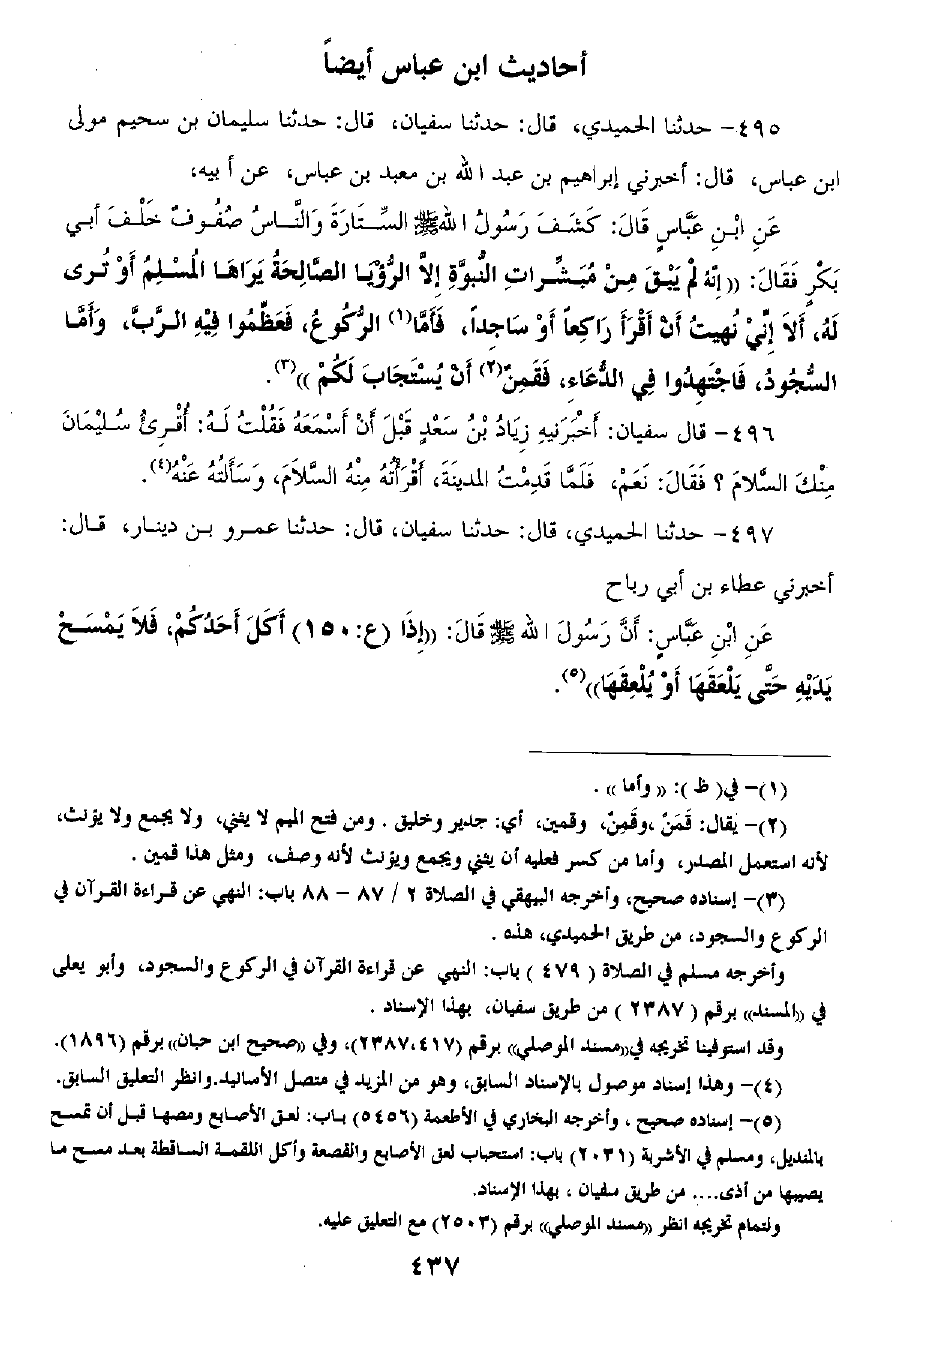 أحاديث ابن عباس أيضاً
٤٩٥- حدثنا الحميدي، قال: حدثنا سفيان، قال: حدثنا سليمان بن سحيم مولى
ابن عباس، قال: أخبرني إبراهيم بن عبد الله بن معبد بن عباس، عن أبيه،
عَنِ ابْنِ عَبَّاسٍ قَالَ: كَشَفَ رَسُولُ اللهِ ﷺ السِّتَارَةَ وَالنَّاسُ صُفُوفٌ خَلْفَ أَبي
بَكْرٍ فَقَالَ: ((إِنَّهُ لَمْ يَبْقَ مِنْ مُبَشِّرَاتِ النُّبوَّةِ إِلاَّ الرُّؤْيَا الصَّالِحَةُ يَرَاهَا الْمُسْلِمُ أَوْ تُرى
لَهُ، أَلاَ إِنِّيْ نُهِيتُ أَنْ أَقْرَأَ رَاكِعاً أَوْ سَاجِداً، فَأَمَّا(١) الرُّكُوعُ، فَعَظِّمُوا فِيْهِ الرَّبَّ، وَأَمَّا
السُّجُودُ، فَاجْتَهِدُوا فِي الدُّعَاءِ، فَقَمِنٌ(٢) أَنْ يُسْتَجَابَ لَكُمْ))(٣).
٤٩٦- قال سفيان: أَخْبَرَنِيهِ زِيَادُ بْنُ سَعْدٍ قَبْلَ أَنْ أَسْمَعَهُ فَقُلْتُ لَهُ: أُقْرِئُ سُلَيْمَانَ
مِنْكَ السَّلاَمَ ؟ فَقَالَ: نَعَمْ، فَلَمَّا قَدِمْتُ المدينَةَ، أَقْرَأْتُهُ مِنْهُ السَّلاَمَ، وَسَأَلْتُهُ عَنْهُ(٤).
٤٩٧- حدثنا الحميدي، قال: حدثنا سفيان، قال: حدثنا عمرو بن دينار، قال:
أخبرني عطاء بن أبي رباح
عَنِ ابْنِ عَبَّاسٍ: أَنَّ رَسُولَ اللهِ ﷺ قَالَ: ((إِذَا (ع:١٥٠) أَكَلَ أَحَدُكُمْ، فَلاَ يَمْسَحْ
يَدَيْهِ حَتَّى يَلْعَقَهَا أَوْ يُلْعِقَهَا))(٥).
(١)- في( ظ ): (( وأما )) .
(٢)- يقال: قَمَنٌ ،وقَمِنٌ، وقمين، أي: جدير وخليق . ومن فتح الميم لا يثني، ولا يجمع ولا يؤنث،
لأنه استعمل المصدر، وأما من كسر فعليه أن يثني ويجمع ويؤنث لأنه وصف، ومثل هذا قمين .
(٣)- إسناده صحيح، وأخرجه البيهقي في الصلاة ٢ / ٨٧ – ٨٨ باب: النهي عن قراءة القرآن في
الركوع والسجود، من طريق الحميدي، هذه .
وأخرجه مسلم في الصلاة ( ٤٧٩ ) باب: النهي عن قراءة القرآن في الركوع والسجود، وأبو يعلى
في ((المسند)) برقم ( ٢٣٨٧ ) من طريق سفيان، بهذا الإسناد .
وقد استوفينا تخريجه في((مسند الموصلي)) برقم (٢٣٨٧،٤١٧)، وفي ((صحيح ابن حبان)) برقم (١٨٩٦).
(٤)- وهذا إسناد موصول بالإسناد السابق، وهو من المزيد في متصل الأسانيد.وانظر التعليق السابق.
(٥)- إسناده صحيح ، وأخرجه البخاري في الأطعمة (٥٤٥٦) باب: لعق الأصابع ومصها قبل أن تمسح
بالمنديل، ومسلم في الأشربة (٢٠٣١) باب: استحباب لعق الأصابع والقصعة وأكل اللقمة الساقطة بعد مسح ما
يصيبها من أذى.... من طريق سفيان ، بهذا الإسناد.
ولتمام تخريجه انظر ((مسند الموصلي)) برقم (٢٥٠٣) مع التعليق عليه.
٤٣٧